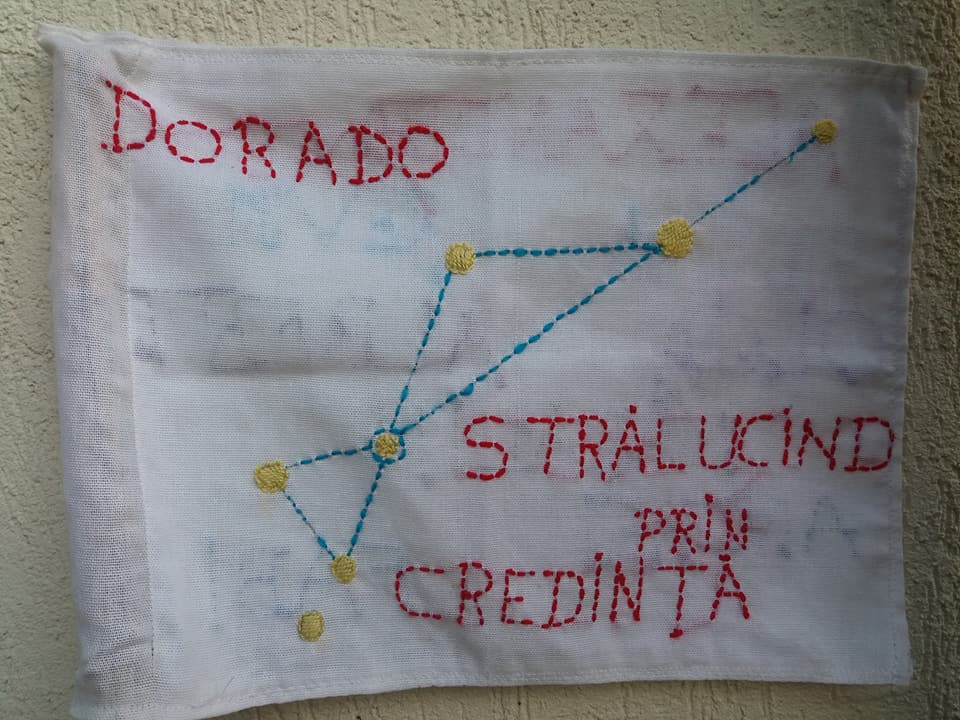 DORADO
STRĂLUCIND
PRIN
CREDINȚĂ